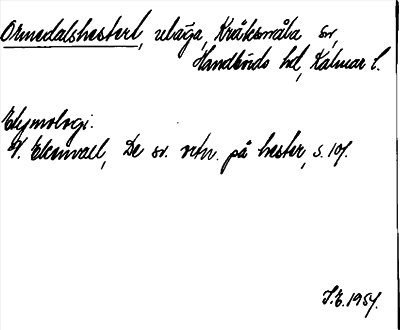 Ormedalshesterl, utäga, Kråksmåla sn,
Handbörds hd, Kalmar l.
Etymologi.
V. Ekenvall, De sv. ortn. på hester, s. 107.
V.E. 1957.